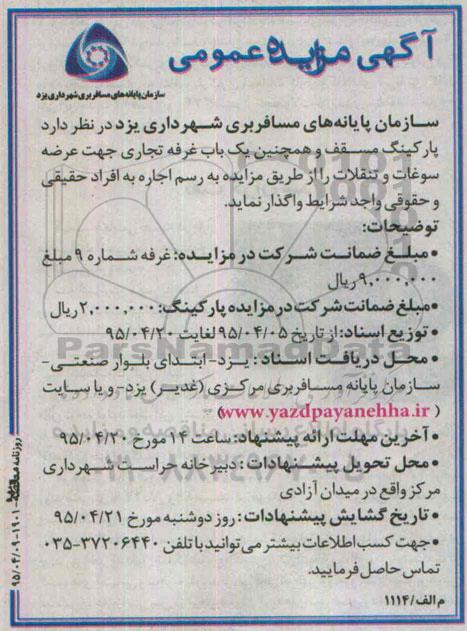 آگهی مزایده عمومی
سازمان پایانه‌های مسافربری شهرداری یزد
سازمان پایانه‌های مسافربری شهرداری یزد در نظر دارد
پارکینگ مسقف و همچنین یک باب غرفه تجاری جهت عرضه
سوغات و تنقلات را از طریق مزایده به رسم اجاره به افراد حقیقی
و حقوقی واجد شرایط واگذار نماید.
توضیحات:
• مبلغ ضمانت شرکت در مزایده: غرفه شماره ۹ مبلغ
۹,۰۰۰,۰۰۰ ریال
• مبلغ ضمانت شرکت در مزایده پارکینگ: ۲,۰۰۰,۰۰۰ ریال
• توزیع اسناد: از تاریخ ۹۵/۰۴/۰۵ لغایت ۹۵/۰۴/۲۰
• محل دریافت اسناد : یزد- ابتدای بلوار صنعتی-
سازمان پایانه مسافربری مرکزی (غدیر) یزد- و یا سایت
(www.yazdpayanehha.ir)
• آخرین مهلت ارائه پیشنهاد: ساعت ۱۴ مورخ ۹۵/۰۴/۲۰
• محل تحویل پیشنهادات : دبیرخانه حراست شهرداری
مرکز واقع در میدان آزادی
• تاریخ گشایش پیشنهادات : روز دوشنبه مورخ ۹۵/۰۴/۲۱
• جهت کسب اطلاعات بیشتر می‌توانید با تلفن ۳۷۲۰۶۴۴۰-۰۳۵
تماس حاصل فرمایید.
م الف/۱۱۱۴
ParsNamadData